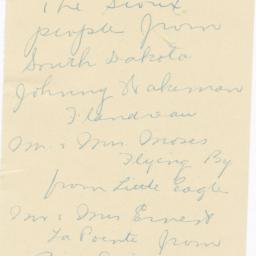 The Sioux
people from
South Dakota
Johnny Wakeman
Flandreau
Mr. & Mrs. Moses
Flying By
from Little Eagle
Mr & Mrs Ernest
La Pointe from